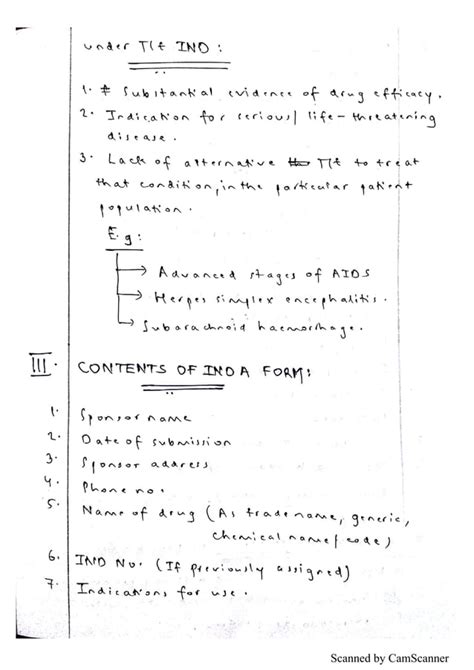 under Tlt IND :
1. Substantial evidence of drug efficacy.
2. Indication for serious/ life-threatening
disease.
3. Lack of alternative Tlt to treat
that condition, in the particular patient
population.
E.g:
→ Advanced stages of AIDS
→ Herpes simplex encephalitis.
→ Subarachnoid haemorrhage.
III. CONTENTS OF IND A FORM:
1. Sponsor name
2. Date of submission
3. Sponsor address
4. Phone no.
5. Name of drug (As trade name, generic,
chemical name/ code)
6. IND No. (If previously assigned)
7. Indications for use.
Scanned by CamScanner